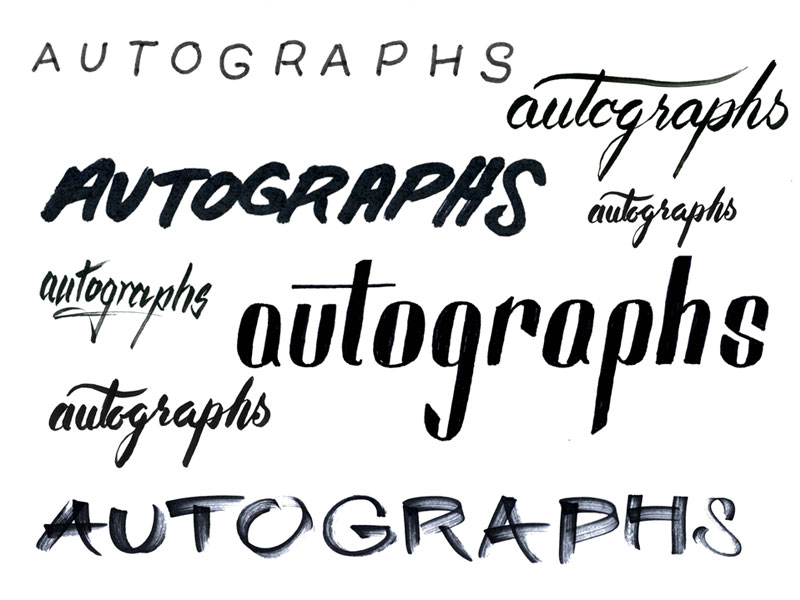 AUTOGRAPHS
autographs
AUTOGRAPHS
autographs
autographs
autographs
autographs
AUTOGRAPHS